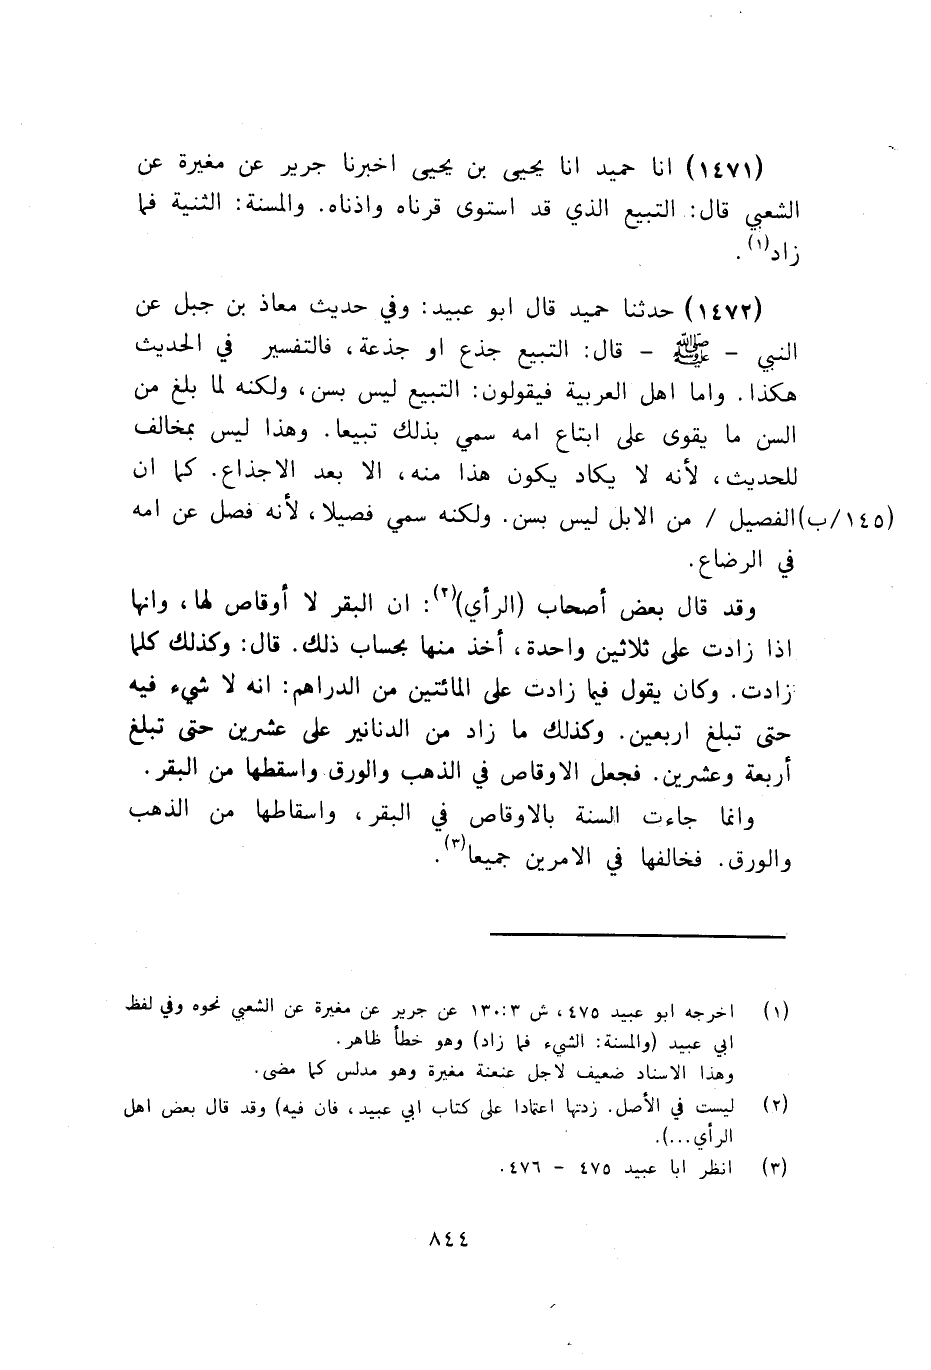 (١٤٧١) انا حميد انا يحيى بن يحيى اخبرنا جرير عن مغيرة عن
الشعبي قال: التبيع الذي قد استوى قرناه واذناه. والمسنة: الثنية فما
زاد(١).
(١٤٧٢) حدثنا حميد قال ابو عبيد: وفي حديث معاذ بن جبل عن
النبي - ﷺ - قال: التبيع جذع او جذعة، فالتفسير في الحديث
هكذا. واما اهل العربية فيقولون: التبيع ليس بسن، ولكنه لما بلغ من
السن ما يقوى على ابتاع امه سمي بذلك تبيعا. وهذا ليس بمخالف
للحديث، لأنه لا يكاد يكون هذا منه، الا بعد الاجذاع. كما ان
(١٤٥/ب)الفصيل / من الابل ليس بسن. ولكنه سمي فصيلا، لأنه فصل عن امه
في الرضاع.
وقد قال بعض أصحاب (الرأي)(٢): ان البقر لا أوقاص لها، وانها
اذا زادت على ثلاثين واحدة، أخذ منها بحساب ذلك. قال: وكذلك كلما
زادت. وكان يقول فيما زادت على المائتين من الدراهم: انه لا شيء فيه
حتى تبلغ اربعين. وكذلك ما زاد من الدنانير على عشرين حتى تبلغ
أربعة وعشرين. فجعل الاوقاص في الذهب والورق واسقطها من البقر.
وانما جاءت السنة بالاوقاص في البقر، واسقاطها من الذهب
والورق. فخالفها في الامرين جميعا(٣).
(١) اخرجه ابو عبيد ٤٧٥، ش ٣: ١٣٠ عن جرير عن مغيرة عن الشعبي نحوه وفي لفظ
ابي عبيد (والمسنة: الشيء فما زاد) وهو خطأ ظاهر.
وهذا الاسناد ضعيف لاجل عنعنة مغيرة وهو مدلس كما مضى.
(٢) ليست في الأصل. زدتها اعتمادا على كتاب ابي عبيد، فان فيه) وقد قال بعض اهل
الرأي...).
(٣) انظر ابا عبيد ٤٧٥ - ٤٧٦.
٨٤٤